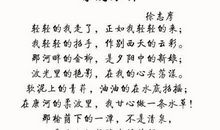 徐志摩
轻轻的我走了，正如我轻轻的来；
我轻轻的招手，作别西天的云彩。
那河畔的金柳，是夕阳中的新娘，
波光里的艳影，在我的心头荡漾。
软泥上的青荇，油油的在水底招摇；
在康河的柔波里，我甘心做一条水草！
那榆荫下的一潭，不是清泉，